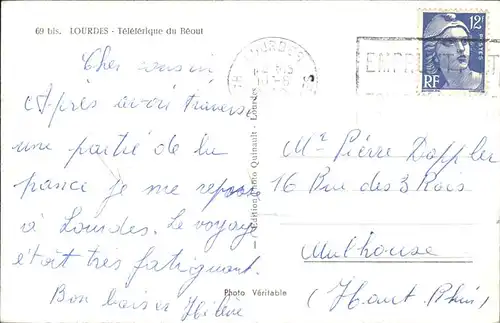 69 bis. LOURDES - Téléférique du Béout
Cher cousin
Après avoir traversé
une partie de la
France je me repose
à Lourdes. Le voyage
était très fatiguant.
Bon baiser Hélène
Edition Photo Quinault - Lourdes
Photo Véritable
LOURDES
12F
POSTE
RF
Mr Pierre Doppler
16 Rue des 3 Rois
Mulhouse
(Haut Rhin)